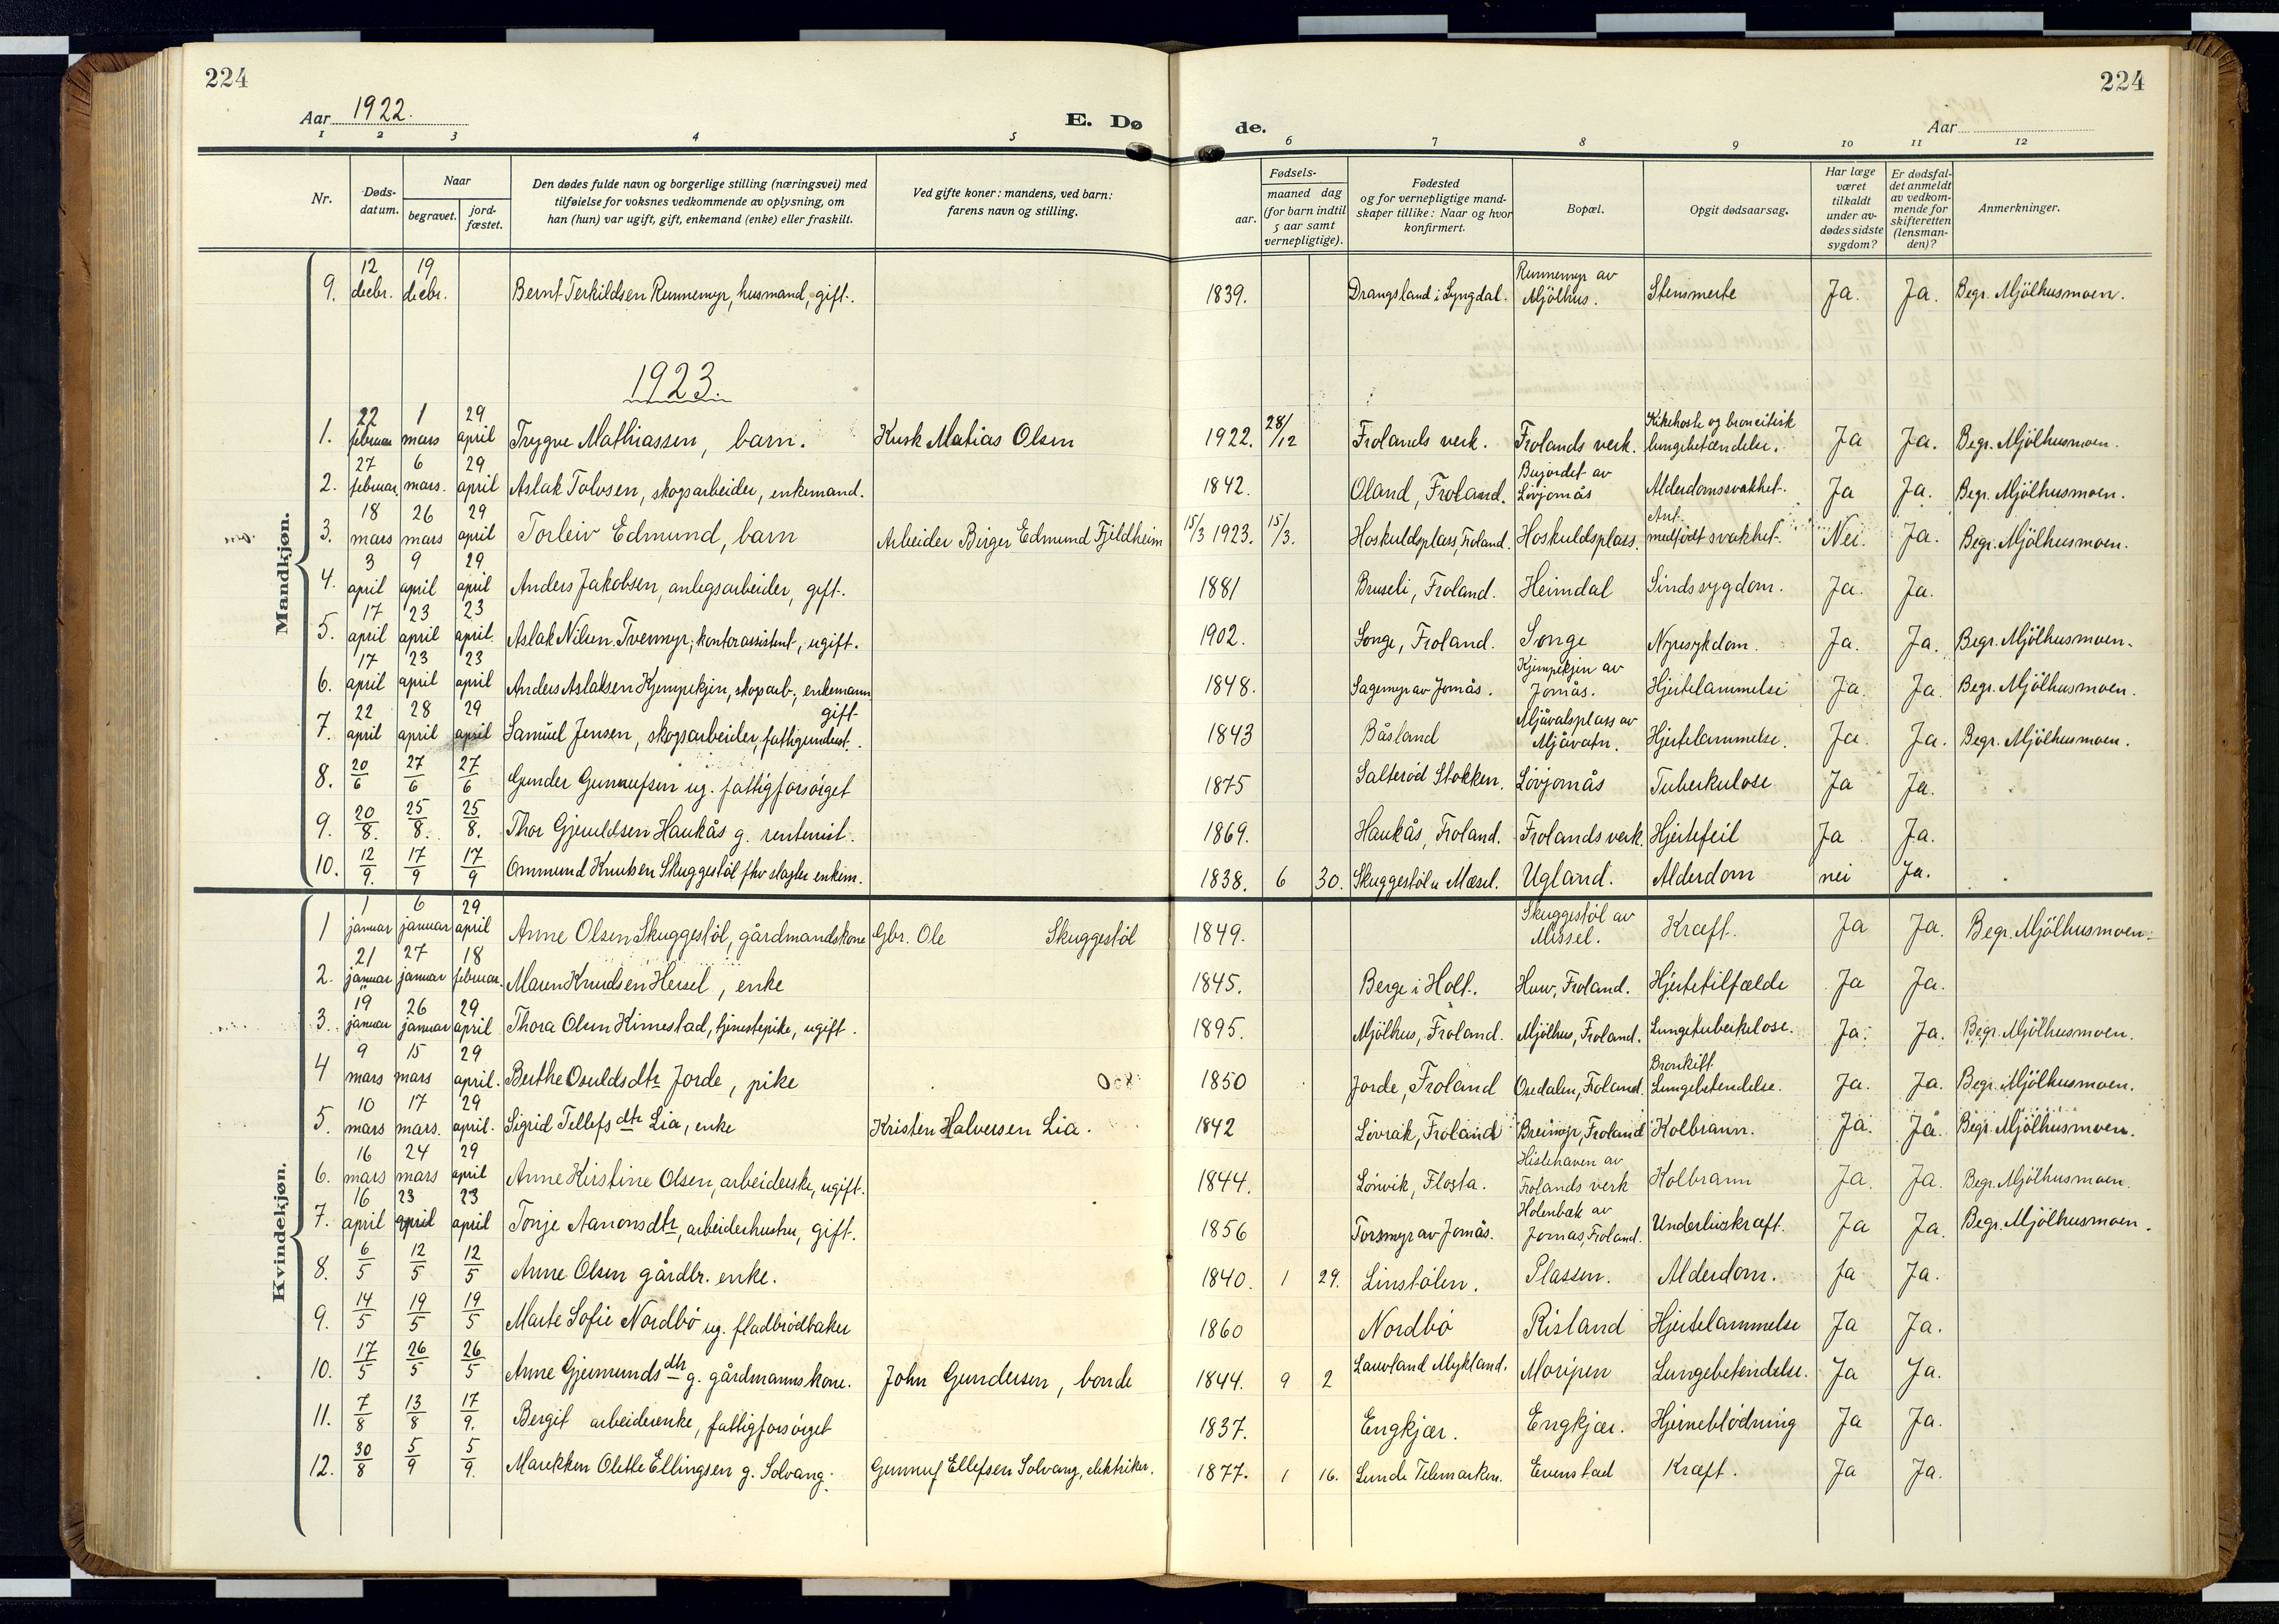 224
224
Aar 1922.
E. Dø
de.
Aar
1 2 3 4 5 6 7 8 9 10 11 12
Nr.
Døds-datum.
Naar
begravet.
jord-fæstet.
Den dødes fulde navn og borgerlige stilling (næringsvei) med tilføielse for voksnes vedkommende av oplysning, om han (hun) var ugift, gift, enkemand (enke) eller fraskilt.
Ved gifte koner: mandens, ved barn: farens navn og stilling.
Fødsels-
aar.
maaned dag
(for barn indtil 5 aar samt vernepligtige).
Fødested og for vernepligtige mand-skaper tillike: Naar og hvor konfirmert.
Bopæl.
Opgit dødsaarsag.
Har læge været tilkaldt under av-dødes sidste sygdom?
Er dødsfal-det anmeldt av vedkom-mende for skifteretten (lensman-den)?
Anmerkninger.
Mandkjøn.
9. 12 decbr. 19 decbr. Bernt Terkildsen Runnemyr, husmand, gift. 1839. Drangsland i Lyngdal. Runnemyr av Mjölhus. Stensmerte Ja. Ja. Begr. Mjölhusmoen.
1923.
1. 22 februar 1 mars 29 april Trygve Mathiassen, barn. Kusk Matias Olsen 1922. 28/12 Frolands verk. Frolands verk. Kikehoste og broncitisk lungebetændelse. Ja Ja. Begr. Mjölhusmoen.
2. 27 februar. 6 mars. 29 april Aslak Tolvsen, skogsarbeider, enkemand. 1842. Oland, Froland. Bujordet av Lövjomås Alderdomssvakhet. Ja Ja. Begr. Mjölhusmoen.
3. 18 mars 26 mars 29 april Torleiv Edmund, barn Arbeider Birger Edmund Fjeldheim 15/3 1923. 15/3. Hoskuldsplass, Froland. Hoskuldsplass. Ant. medfödt svakhet. Nei. Ja. Begr. Mjölhusmoen.
4. 3 april 9 april 29 april Anders Jakobsen, anlegsarbeider, gift. 1881 Bruseli, Froland. Heimdal Sindssygdom. Ja. Ja.
5. 17 april 23 april 23 april. Aslak Nilsen Tvermyr, kontorassistent, ugift. 1902. Songe, Froland. Songe Nyresykdom. Ja. Ja. Begr. Mjölhusmoen.
6. 17 april 23 april 23 april Anders Aslaksen Kjempekjen, skogsarb., enkemann 1848. Sagemyr av Jomås. Kjempekjen av Jomås. Hjertelammelse Ja. Ja. Begr. Mjölhusmoen.
7. 22 april 28 april 29 april Samuel Jensen, skogsarbeider, fattigunderst. gift. 1843 Båsland Mjåvatsplass av Mjåvatn. Hjertelammelse. Ja. Ja. Begr. Mjölhusmoen.
8. 20/6 27/6 27/6 Gunder Gunnufsen ug. fattigforsörget 1875 Salteröd Stokken. Lövjomås Tuberkulose Ja Ja.
9. 20/8. 25/8. 25/8. Thor Gjeruldsen Haukås g. rentenist. 1869. Haukås, Froland. Frolands verk. Hjertefeil Ja Ja.
10. 12/9. 17/9 17/9 Ommund Knutsen Skuggestöl fhv slagter enkem. 1838. 6 30. Skuggestöl u Mæsel. Ugland. Alderdom nei Ja.
Kvindekjøn.
1 1 januar 6 januar 29 april Anne Olsen Skuggestöl, gårdmandskone Gbr. Ole Skuggestöl 1849. Skuggestöl av Missel. Kræft. Ja Ja. Begr. Mjölhusmoen.
2. 21 januar 27 januar 18 februar. Maren Knudsen Hersel, enke 1845. Berge i Holt. Huw, Froland. Hjertetilfælde Ja Ja.
3. 19 januar 26 januar 29 april Thora Olsen Kimestad, tjenestepike, ugift. 1895. Mjölhus, Froland. Mjölhus, Froland. Lungetuberkulose. Ja. Ja. Begr. Mjölhusmoen.
4 9 mars 15 mars 29 april. Berthe Osuldsdtr Jorde, pike 1850 Jorde, Froland Osedalen, Froland. Bronkitt Lungebetendelse. Ja. Ja. Begr. Mjölhusmoen.
5. 10 mars 17 mars. 29 april. Sigrid Tellefsdtr Lia, enke Kristen Halvorsen Lia. 1842 Lövrak, Froland Breimyr, Froland Kolbrann. Ja. Ja. Begr. Mjölhusmoen.
6. 16 mars 24 mars 29 april Anne Kirstine Olsen, arbeiderske, ugift. 1844. Lönvik, Flosta. Histehaven av Frolands verk Kolbrann Ja. Ja. Begr. Mjölhusmoen.
7. 16 april 23 april 23 april Tonje Aanonsdtr, arbeiderhustru, gift. 1856 Torsmyr av Jomås. Holenbæk av Jomas, Froland. Underlivskræft. Ja Ja. Begr. Mjölhusmoen.
8. 6/5 12/5 12/5 Anne Olsen gårdbr. enke. 1840. 1 29. Linstölen. Plassen. Alderdom. Ja Ja.
9. 14/5 19/5 19/5 Marte Sofie Nordbö ug. fladbrödbaker 1860 Nordbö Risland Hjertelammelse Ja Ja.
10. 17/5 26/5 26/5 Anne Gjermundsdtr g. gårdmannskone. John Gundersen, bonde 1844. 9 2 Lauvland Mykland. Moripen Lungebetendelse. Ja Ja.
11. 7/8 13/8 17/9. Bergit arbeiderenke, fattigforsörget 1837. Engkjær. Engkjær. Hjerneblödning Ja Ja.
12. 30/8 5/9 5/9. Marekken Oletle Ellingsen g. Solvang. Gunnuf Ellefsen Solvang, elektriker. 1877. 1 16. Lunde Telemarken. Evenstad Kræft. Ja Ja.